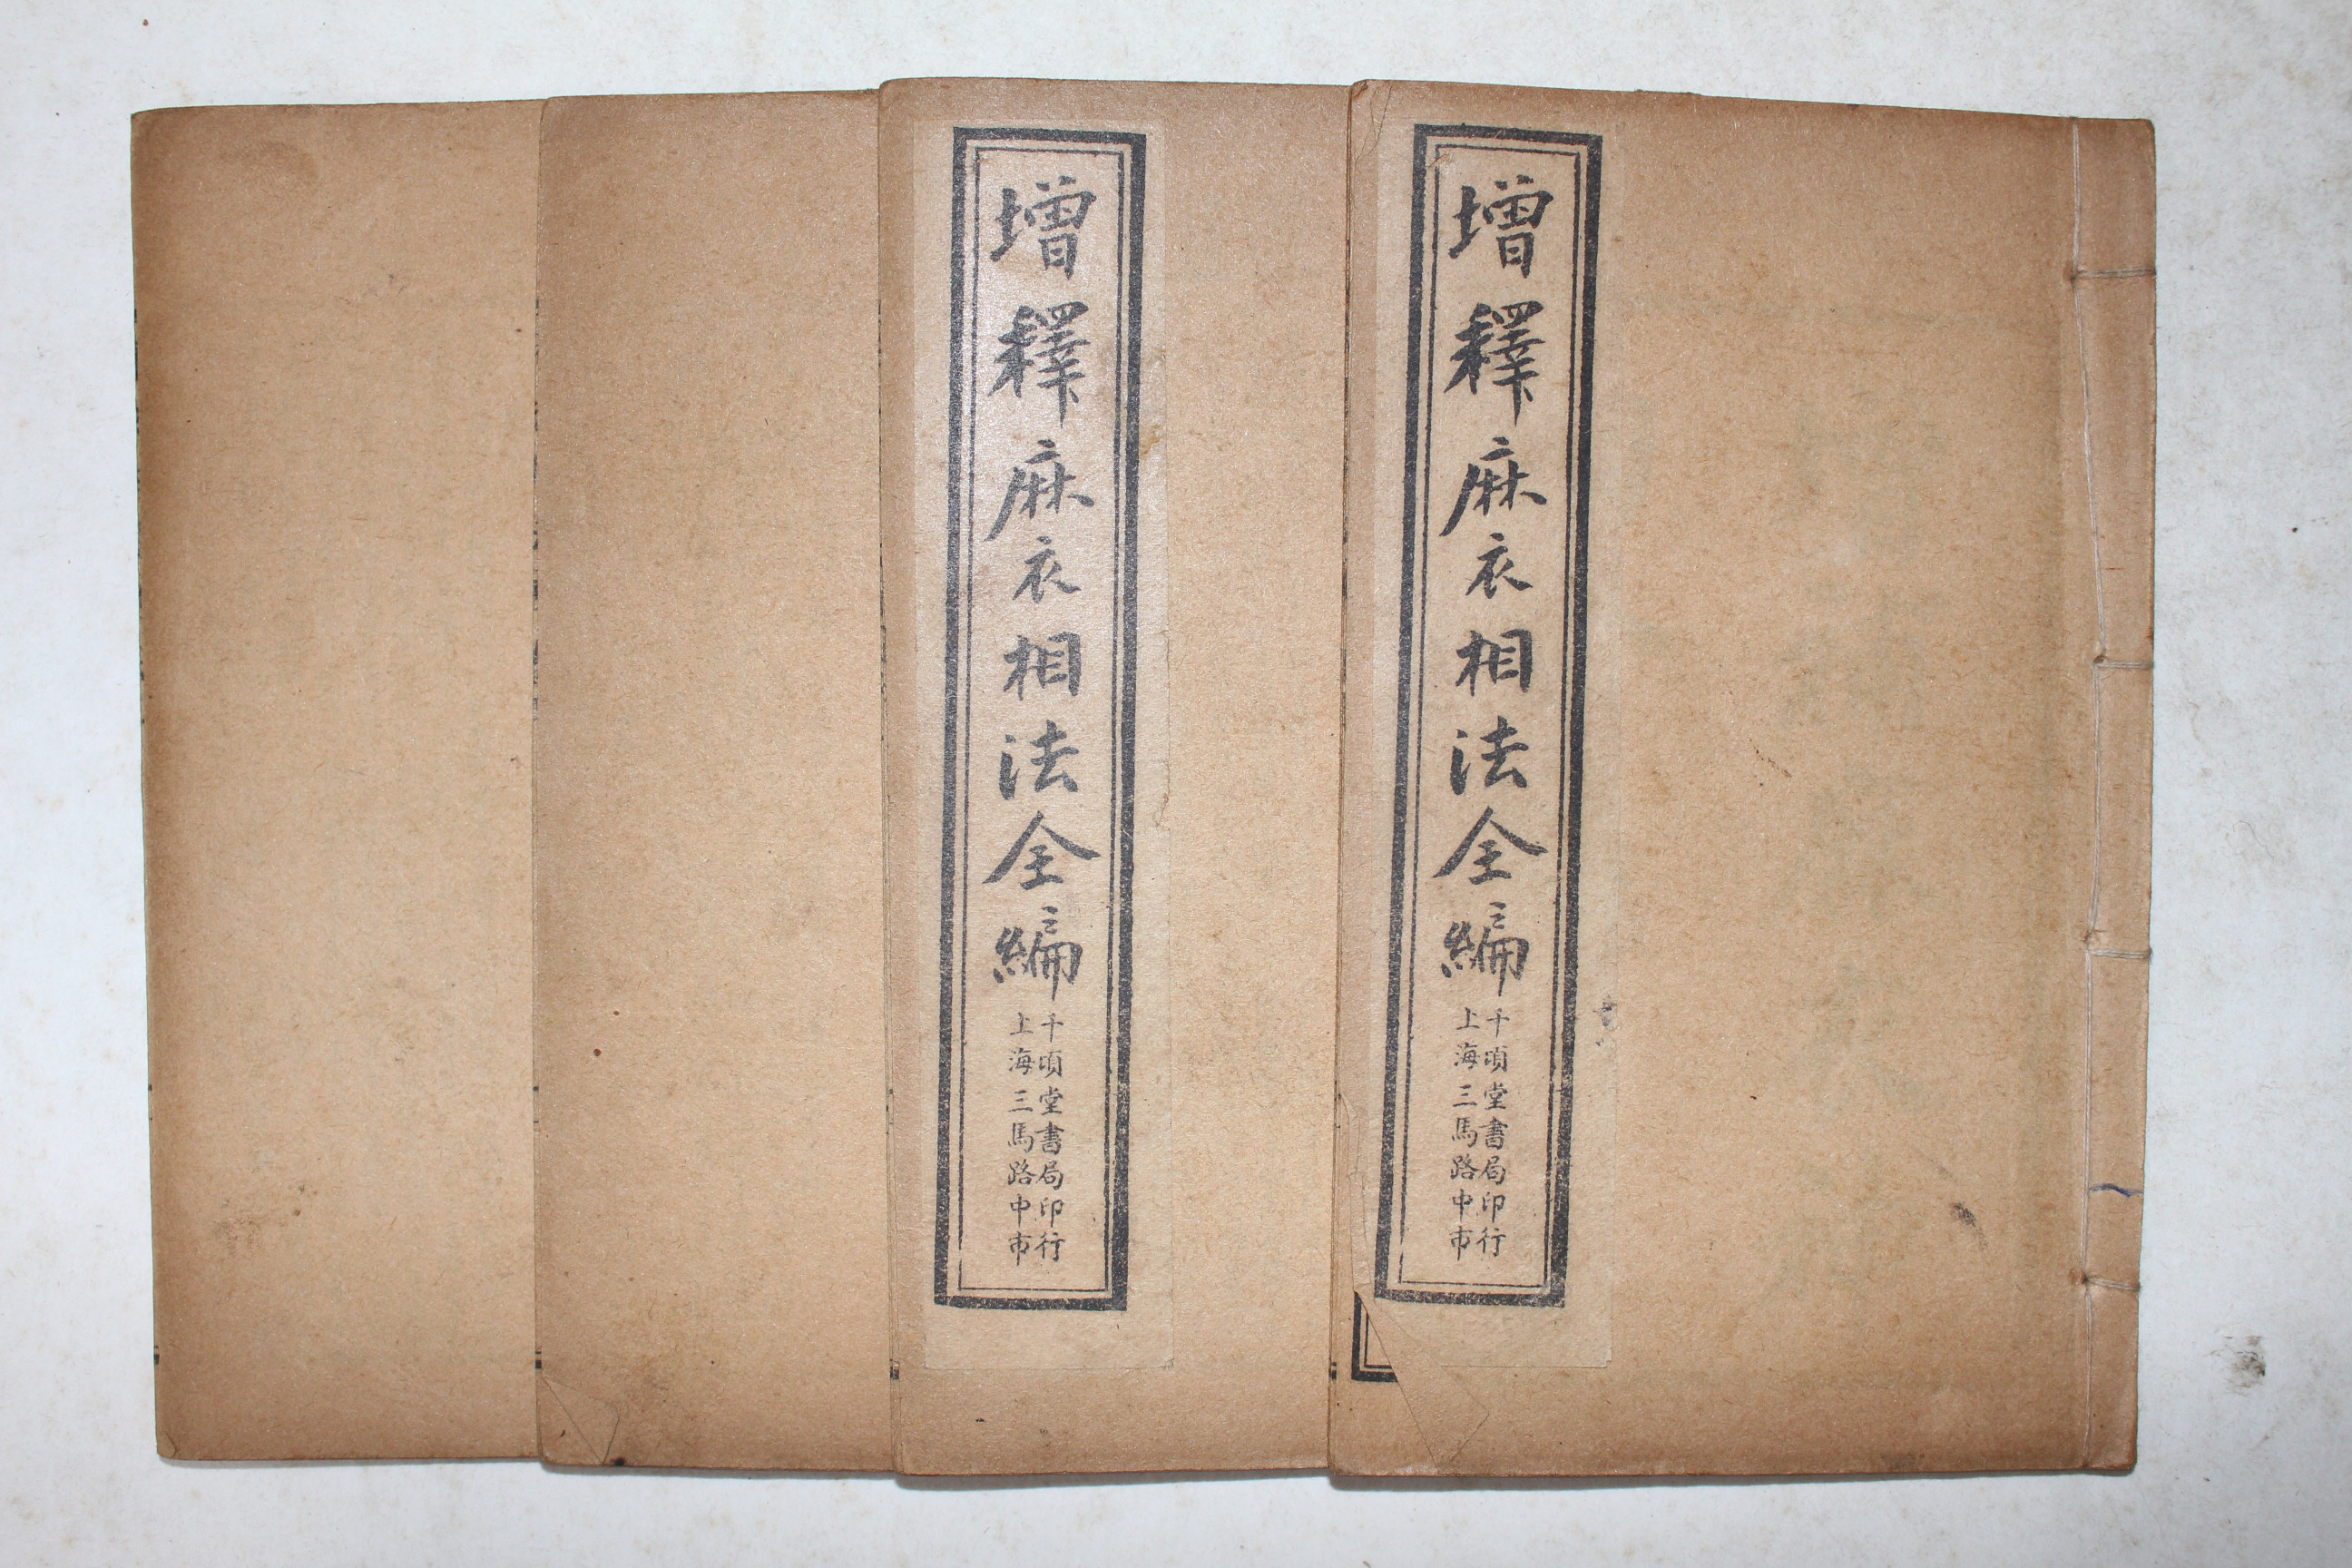 增釋麻衣相法全編
千頃堂書局印行
上海三馬路中市
增釋麻衣相法全編
千頃堂書局印行
上海三馬路中市